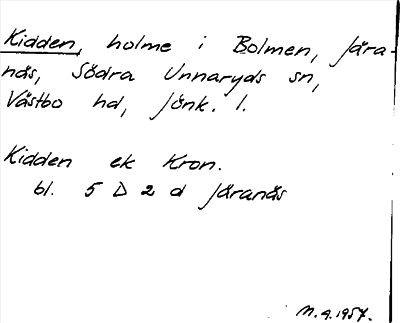 Kidden, holme i Bolmen, Jära-
näs, Södra Unnaryds sn,
Västbo hd, Jönk. l.
Kidden ek Kron.
bl. 5 D 2 d Järanäs
M. 9. 1957.